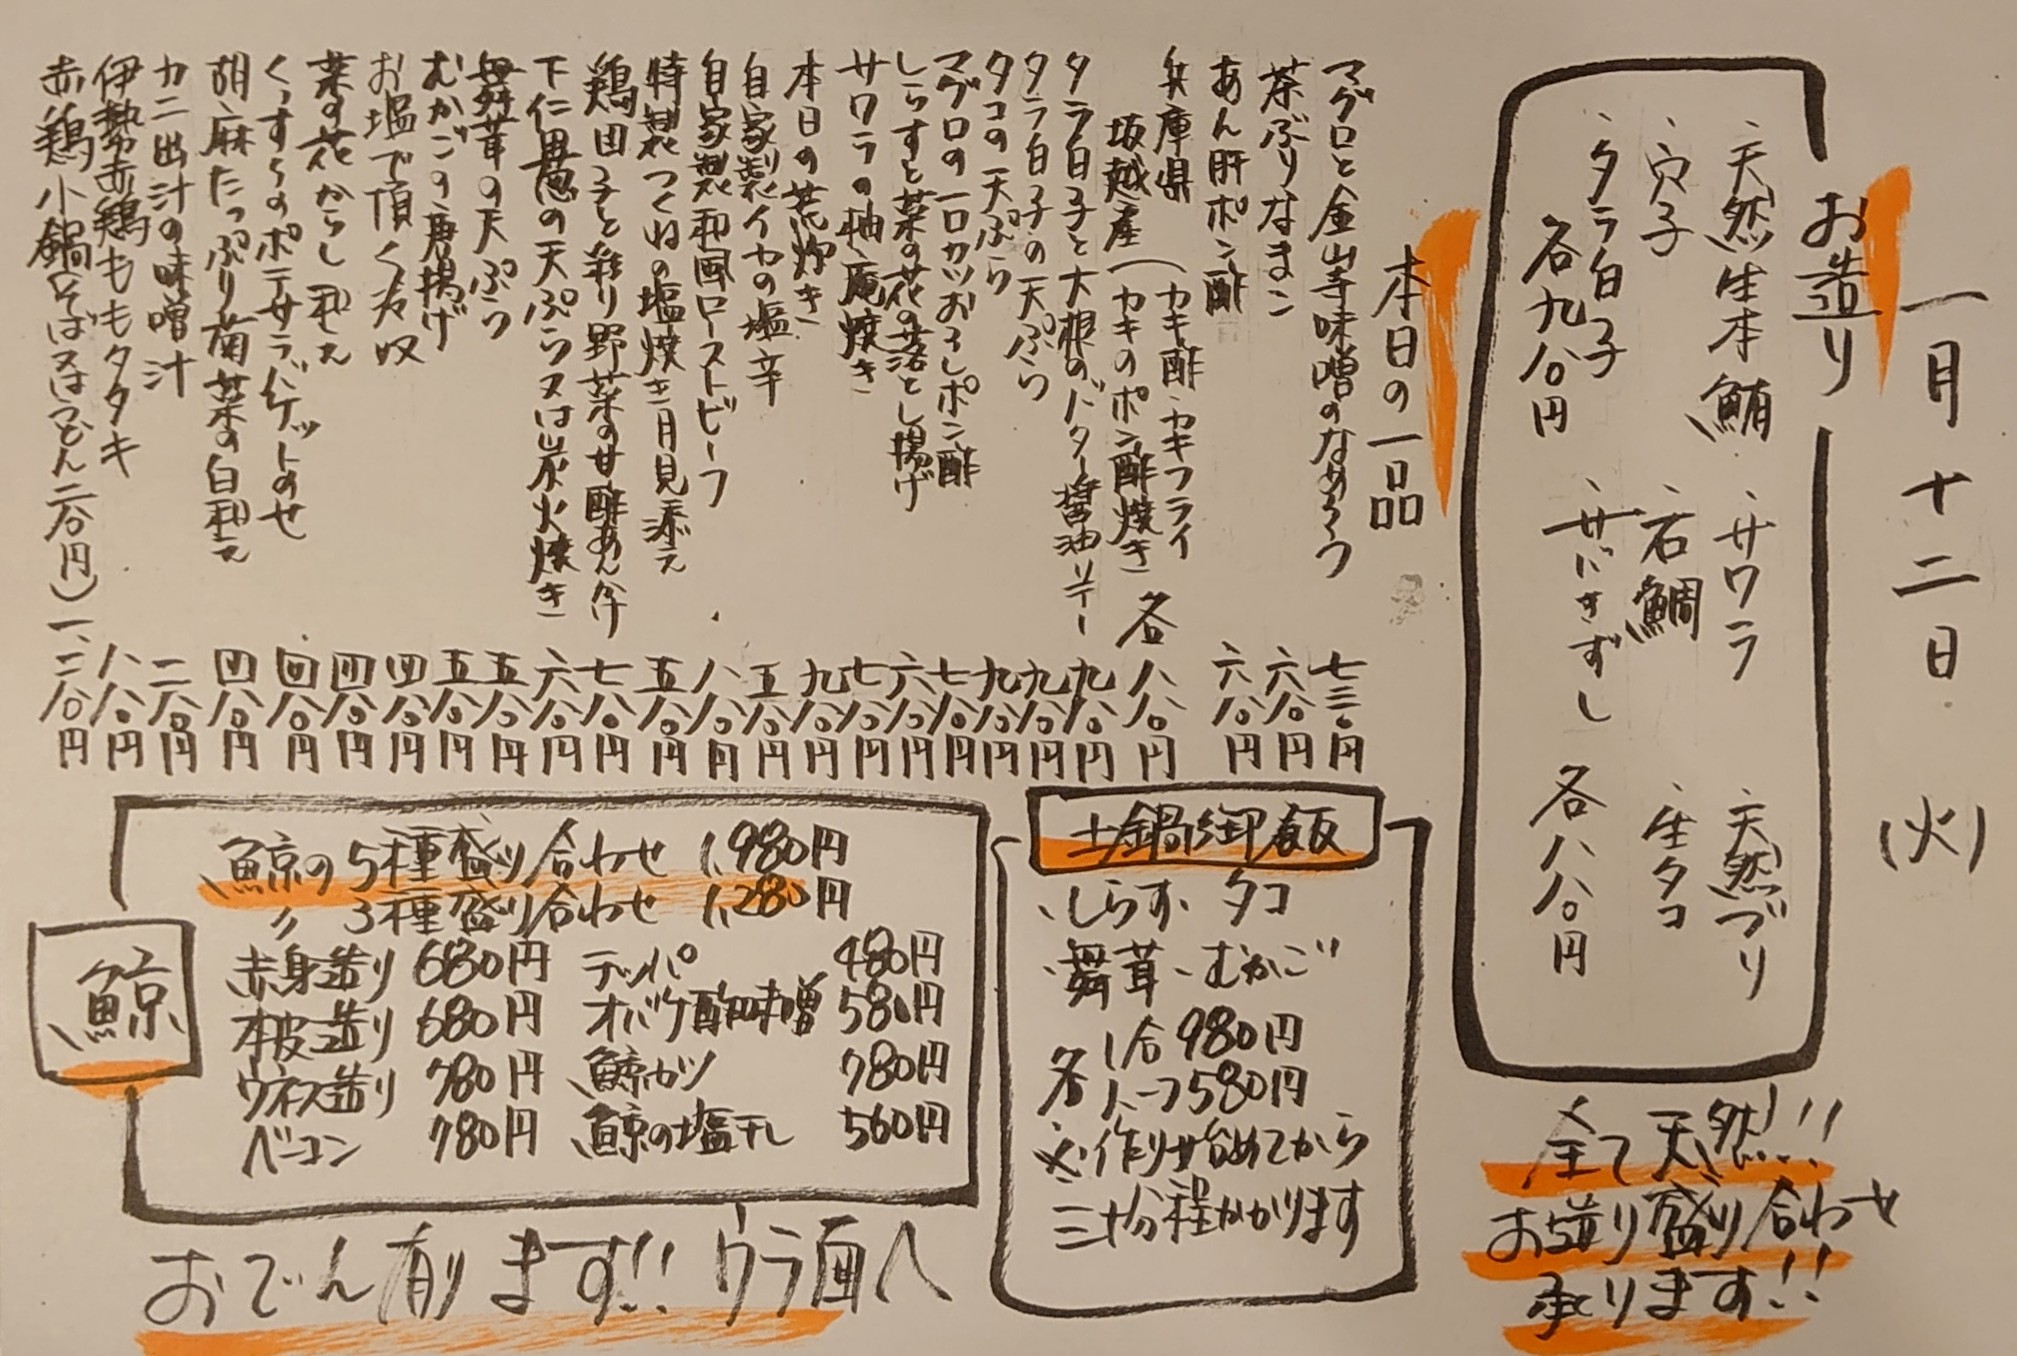 一月十二日(火)
お造り
・天然生本鮪 ・サワラ ・天然ブリ
・穴子 ・石鯛 ・生タコ
・タラ白子 ・サバきずし
各九八〇円 各八八〇円
全て天然!!
お造り盛り合わせ
承ります!!
本日の一品
マグロと金山寺味噌のなめろう 七三〇円
茶ぶりなまこ 六八〇円
あん肝ポン酢 六八〇円
兵庫県坂越産(カキ酢・カキフライ
カキのポン酢焼き 各八八〇円
タラ白子と大根のバター醤油ソテー 九八〇円
タラ白子の天ぷら 九八〇円
タコの天ぷら 九八〇円
マグロの一口カツおろしポン酢 七八〇円
しらすと菜の花の落とし揚げ 六八〇円
サワラの柚庵焼き 七八〇円
本日の荒炊き 九八〇円
自家製イカの塩辛 五八〇円
自家製和風ローストビーフ 八八〇円
特製つくねの塩焼き月見添え 五八〇円
鶏団子と彩り野菜の甘酢あんかけ 七八〇円
下仁田葱の天ぷら又は炭火焼き 六八〇円
舞茸の天ぷら 五八〇円
むかごの唐揚げ 五八〇円
お塩で頂く冷奴 四八〇円
菜の花からし和え 四八〇円
くっすらのポテサラバゲットのせ 四八〇円
胡麻たっぷり菊菜の白和え 四八〇円
カニ出汁の味噌汁 二八〇円
伊勢赤鶏ももタタキ 八八〇円
赤鶏小鍋(そば又はうどん二八〇円) 一、二八〇円
土鍋御飯
・しらす ・タコ
・舞茸 ・むかご
各 1合980円
ハーフ580円
※作り始めてから
三十分程かかります
鯨
鯨の5種盛り合わせ 1,980円
〃 3種盛り合わせ 1,280円
赤身造り 680円 テッパ 480円
本皮造り 680円 オバケ酢味噌 580円
ウネス造り 780円 鯨カツ 780円
ベーコン 780円 鯨の塩干し 560円
おでん有ります!! ウラ面へ